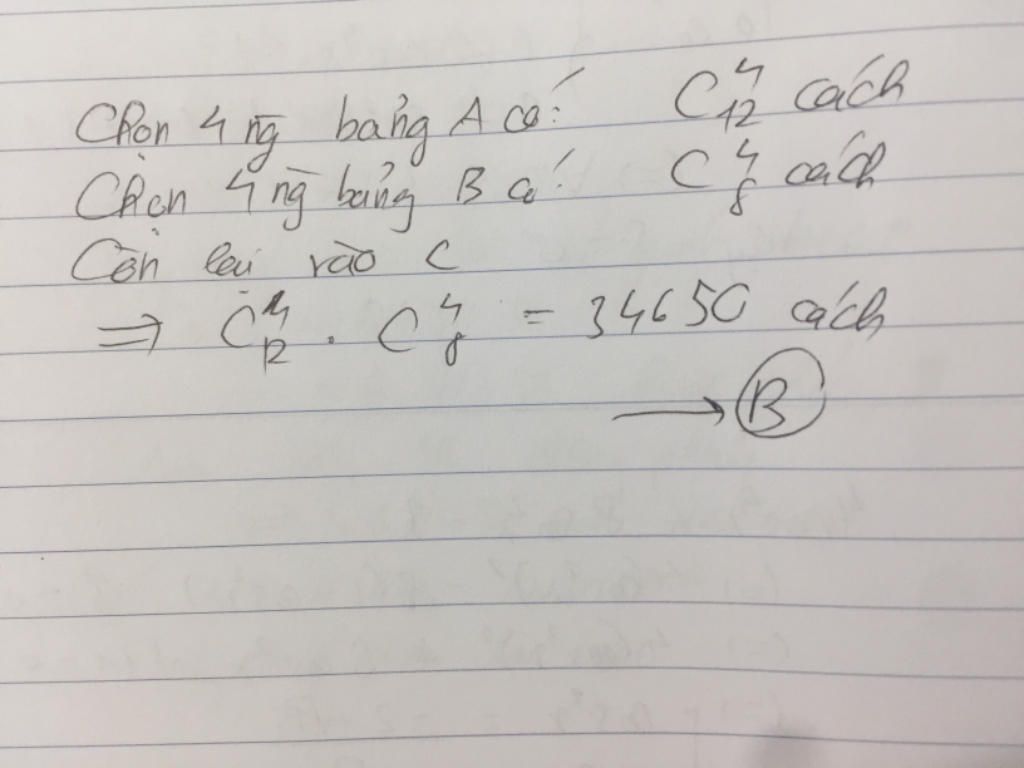 Chọn 4 ng bảng A có: C₁₂⁴ cách
Chọn 4 ng bảng B có: C₈⁴ cách
Còn lại vào C
⇒ C₁₂⁴ . C₈⁴ = 34650 cách
→ B